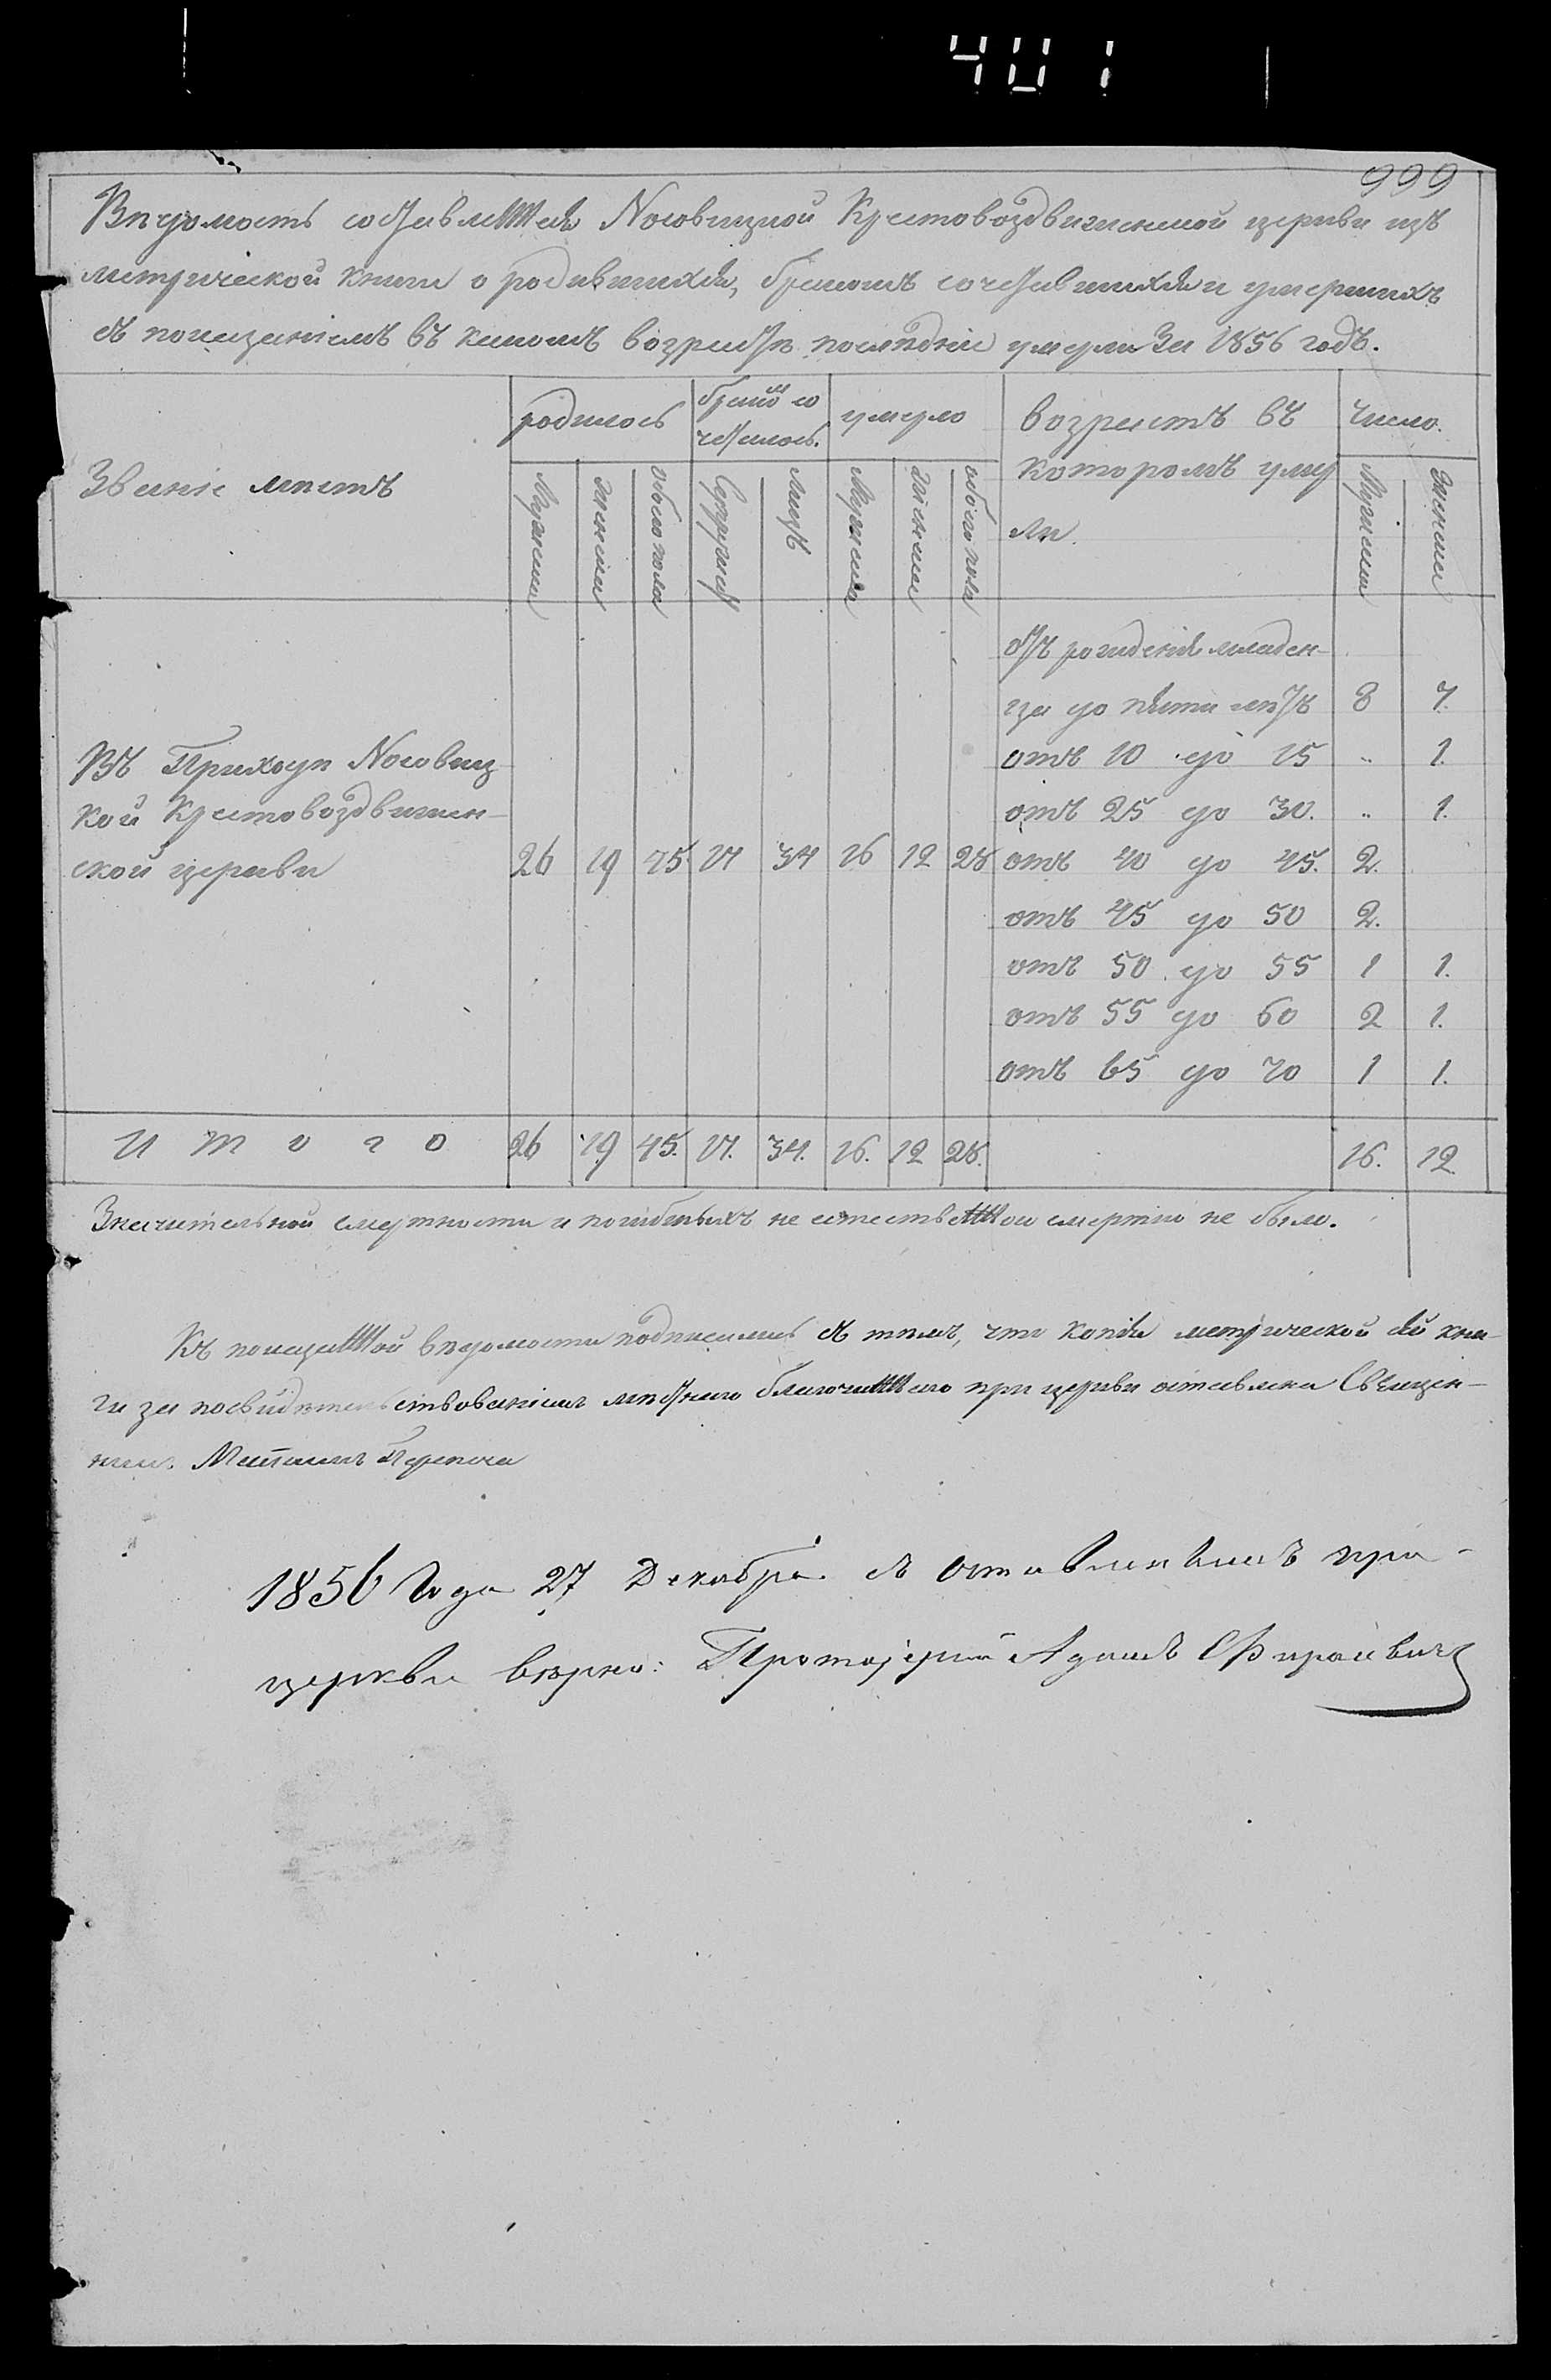 401
999
Вѣдомость составленная Носовицкой Крестовоздвиженской церкви изъ
метрической книги о родившихся, бракомъ сочетавшихся и умершихъ
съ показаніемъ въ какомъ возрастѣ послѣдніе умерли За 1856 годъ.
Званіе мѣстъ
родилось
бракомъ со
четалось.
умерло
возрастъ въ
которомъ умер
ли.
число.
Мужеска
женска
обоего пола
Супружес
лицъ
Мужеска
женска
обоего пола
Мужеска
Женска
Въ Приходѣ Носовиц
кой Крестовоздвижен-
ской церкви
26 19 45 17 34 16 12 28
отъ рожденія младен-
ца до пяти лѣтъ 8 7.
отъ 10 до 15 „ 1.
отъ 25 до 30. „ 1.
отъ 40 до 45. 2.
отъ 45 до 50 2.
отъ 50 до 55 1 1.
отъ 55 до 60 2 1.
отъ 65 до 70 1 1.
Итого 26 19 45. 17. 34. 16. 12 28. 16. 12
Значительной смертности и погибшихъ не естественною смертію не было.
Къ показанной вѣдомости подписались съ тѣмъ, что копія метрической сей кни-
ги за посвидѣтельствованіемъ мѣстнаго благочиннаго при церкви оставлена Священ-
никъ
1856 Года 27 Декабря съ оставленіемъ при
церкви вѣрно: Протоіерей Адамъ